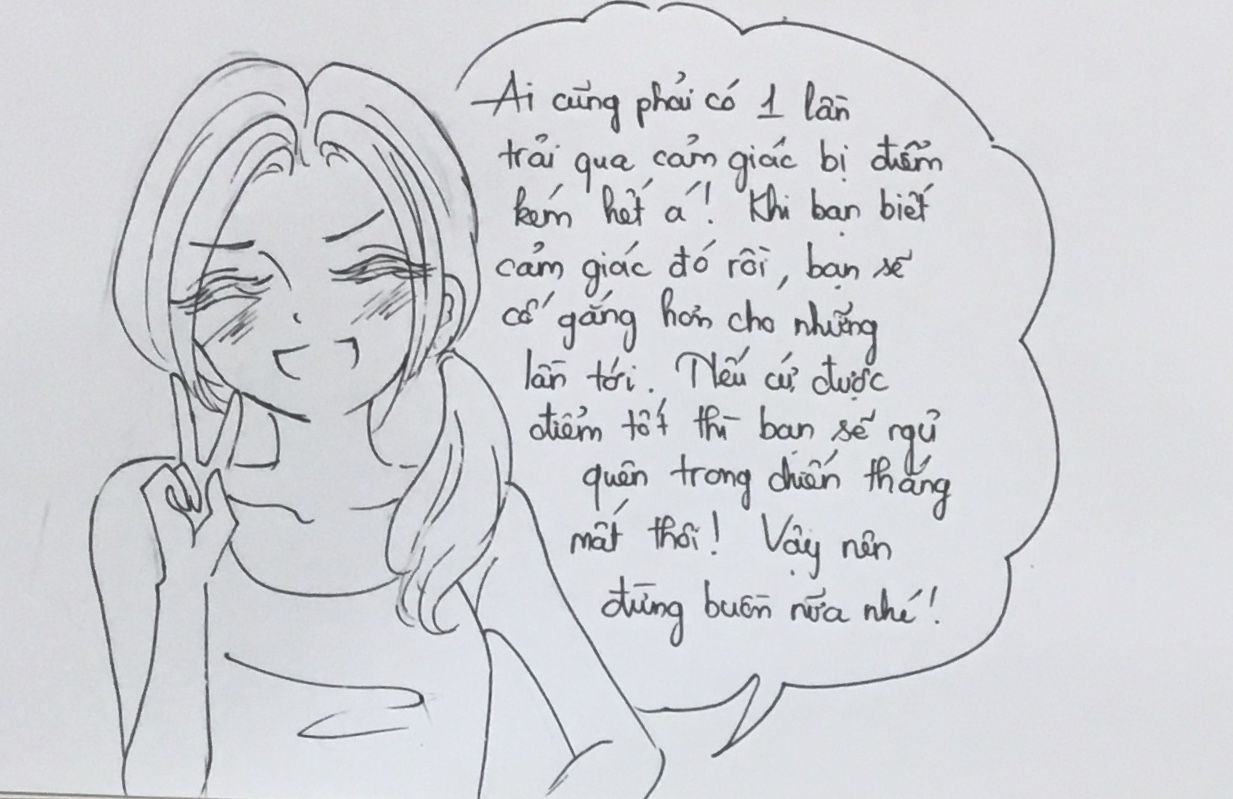 Ai cũng phải có 1 lần
trải qua cảm giác bị điểm
kém hết á! Khi bạn biết
cảm giác đó rồi, bạn sẽ
cố gắng hơn cho những
lần tới. Nếu cứ được
điểm tốt thì bạn sẽ ngủ
quên trong chiến thắng
mất thôi! Vậy nên
đừng buồn nữa nhé!